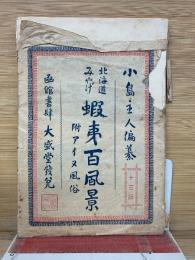 小島主人編纂
北海道みやげ
蝦夷百風景
附アイヌ風俗
函館書肆 大盛堂發兌